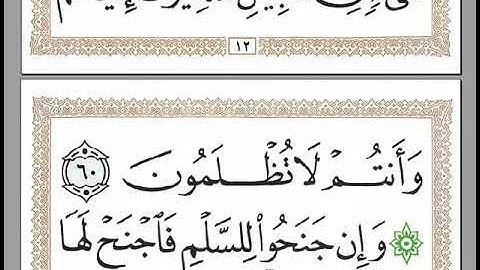 ١٢
وَأَنتُمْ لَا تُظْلَمُونَ ٦٠
وَإِن جَنَحُوا۟ لِلسَّلْمِ فَٱجْنَحْ لَهَا